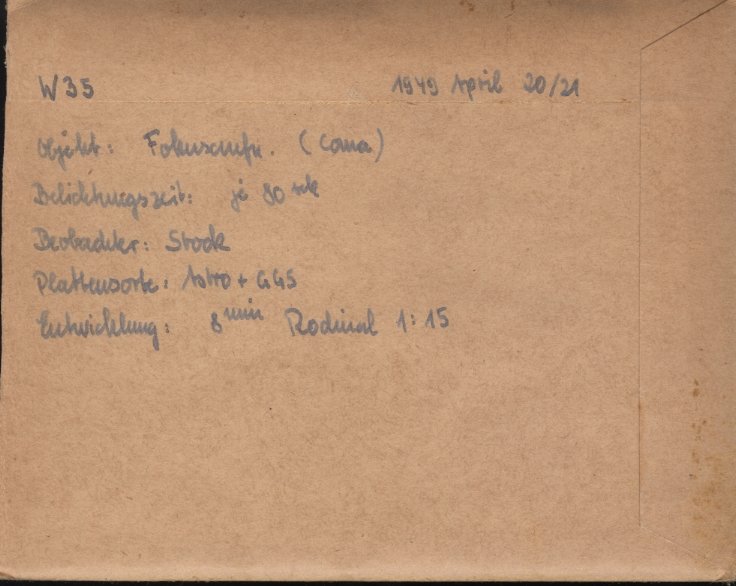 W35 1949 April 20/21
Objekt: Fokusaufn. (Coma)
Belichtungszeit: je 80 sek
Beobachter: Stock
Plattensorte: Astro + GG5
Entwicklung: 8 min Rodinal 1:15